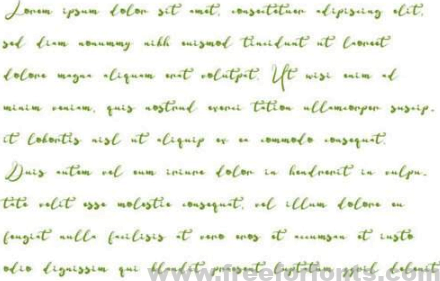 Lorem ipsum dolor sit amet, consectetuer adipiscing elit,
sed diam nonummy nibh euismod tincidunt ut laoreet
dolore magna aliquam erat volutpat. Ut wisi enim ad
minim veniam, quis nostrud exerci tation ullamcorper suscip-
it lobortis nisl ut aliquip ex ea commodo consequat.
Duis autem vel eum iriure dolor in hendrerit in vulpu-
tate velit esse molestie consequat, vel illum dolore eu
feugiat nulla facilisis at vero eros et accumsan et iusto
odio dignissim qui blandit praesent luptatum zzril delenit
www.freeforfonts.com